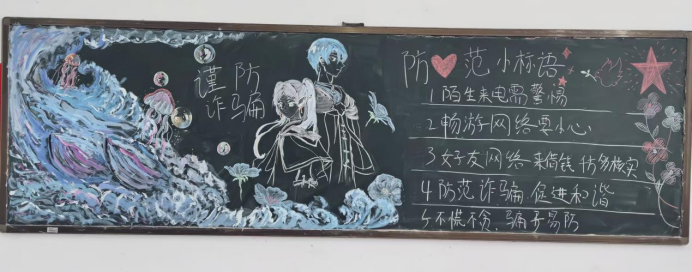 谨防
诈骗
防范小标语
1陌生来电需警惕
2畅游网络要小心
3好友网络来借钱仿多核实
4防范诈骗促进和谐
5不慌不贪,骗子易防